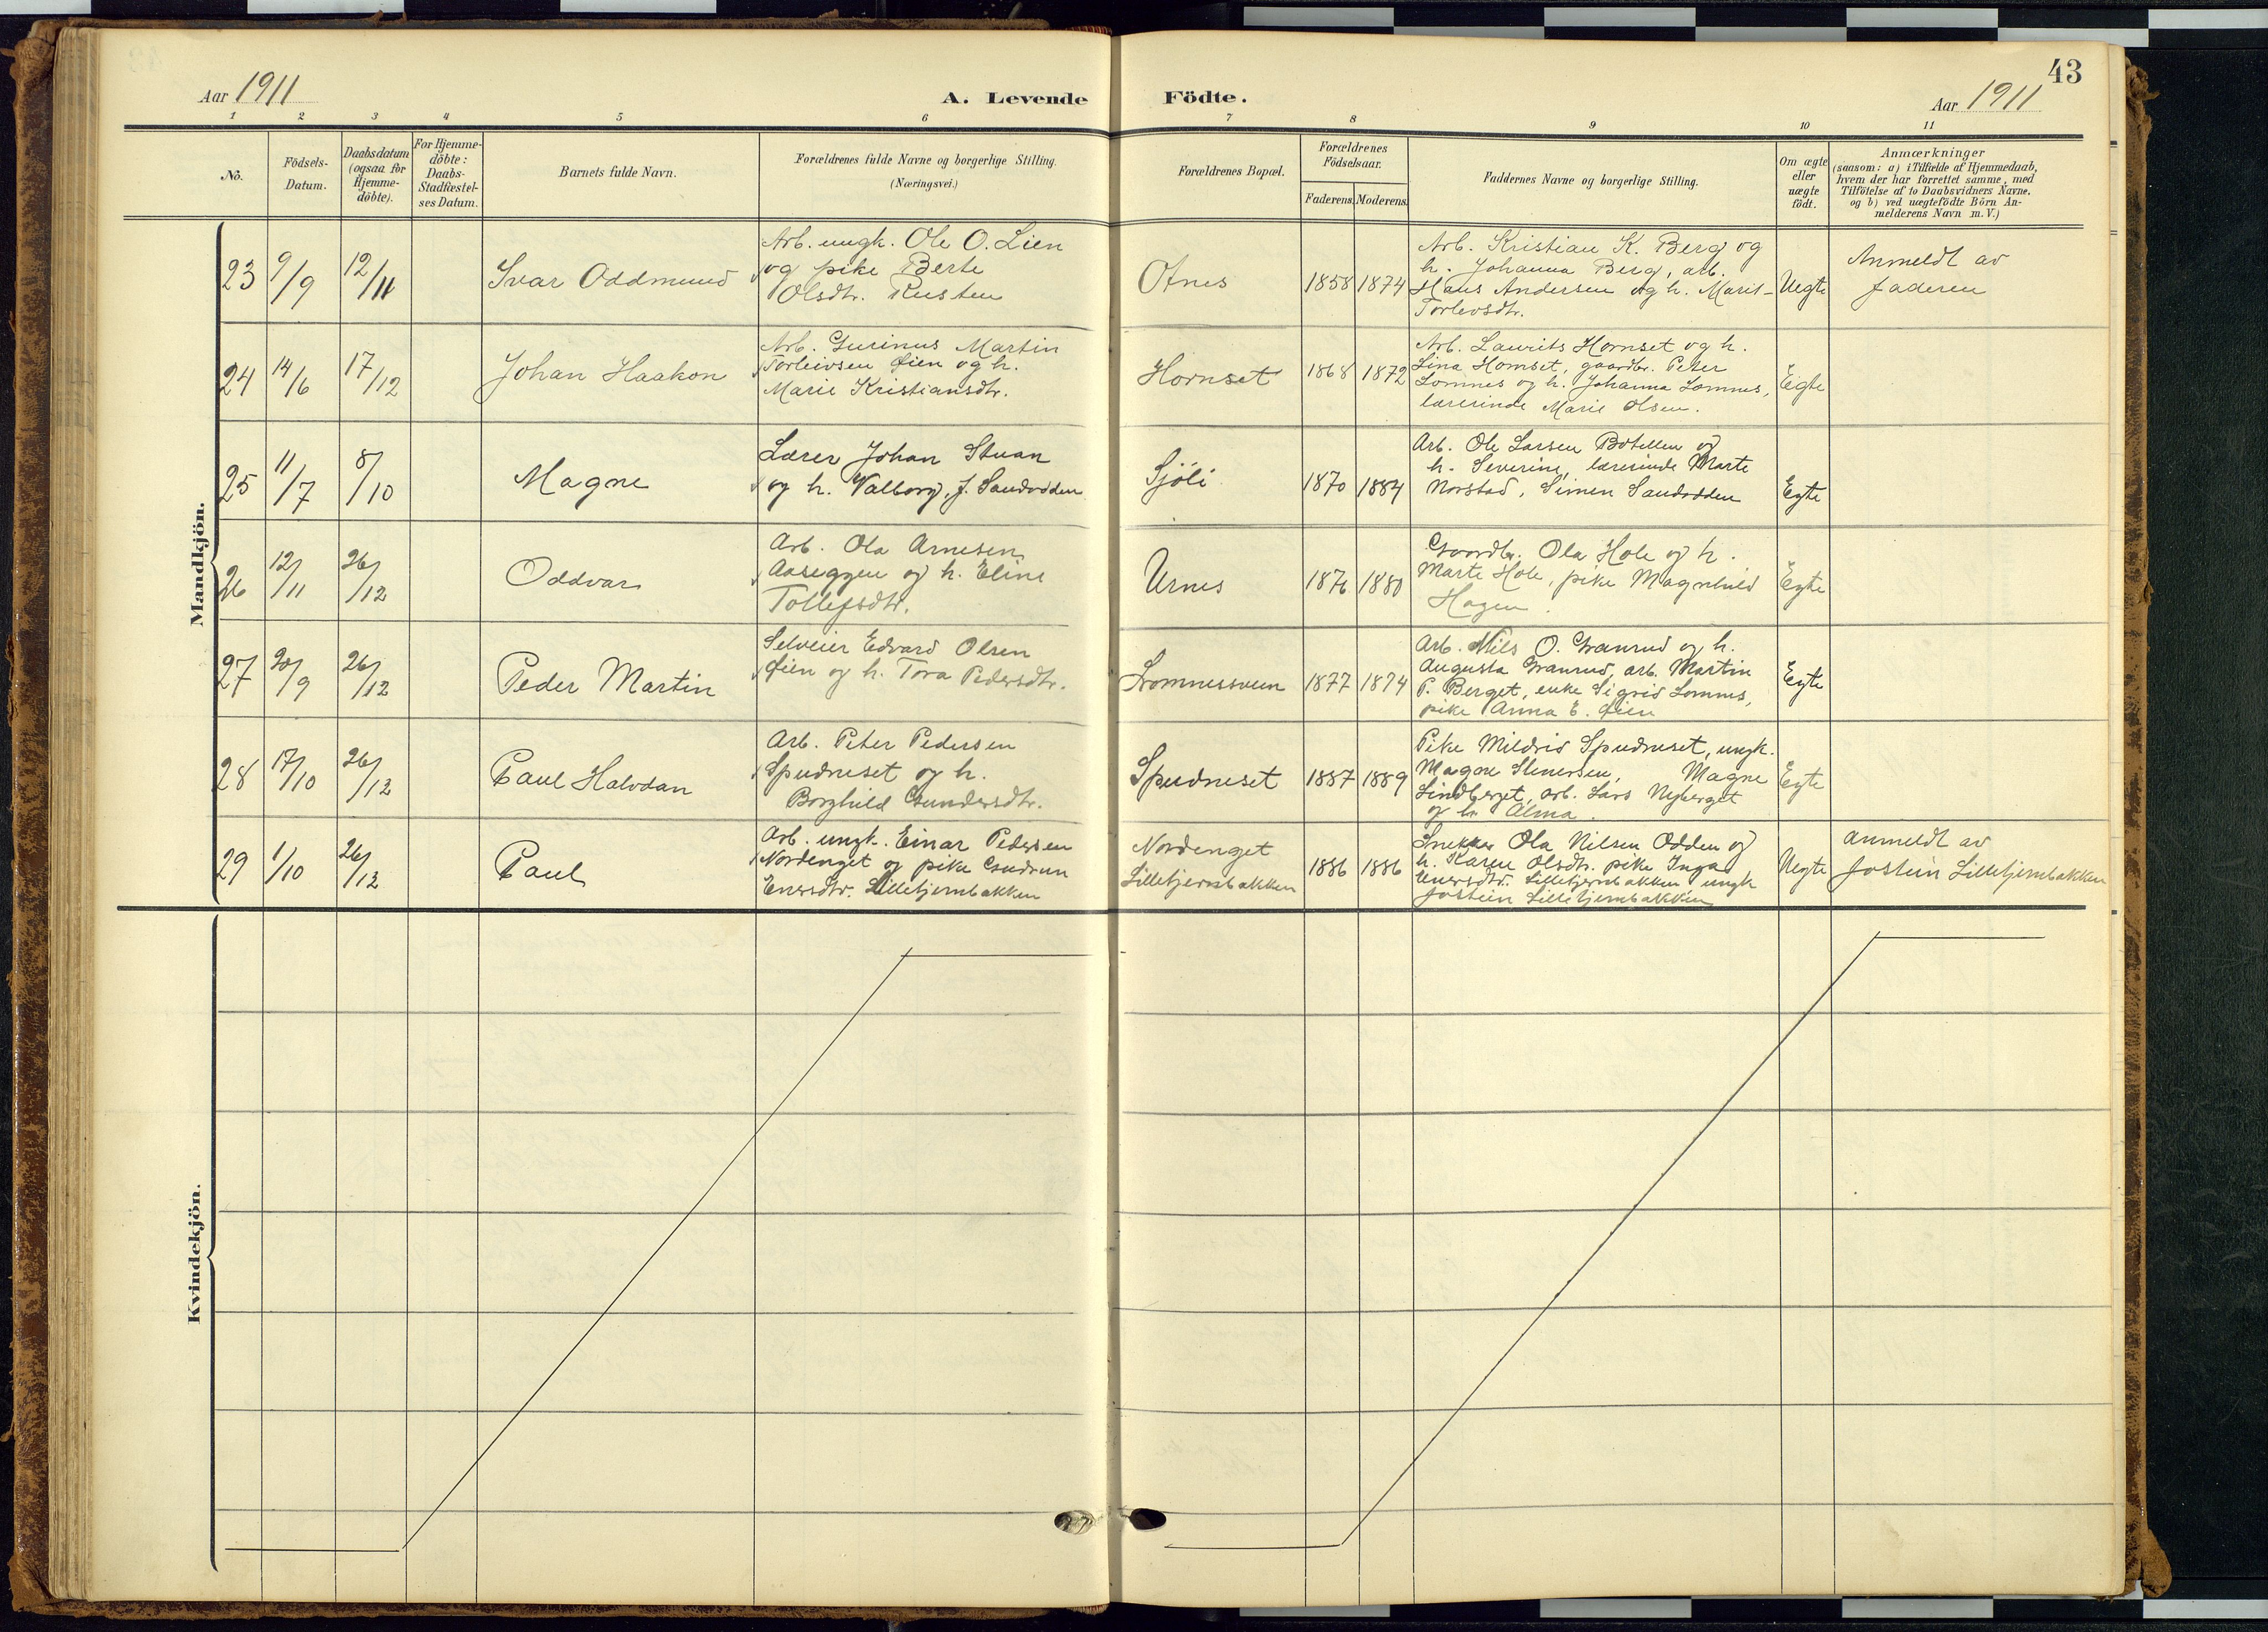 43
Aar 1911
A. Levende Födte.
Aar 1911
1 2 3 4 5 6 7 8 9 10 11
No.
Födsels-
Datum.
Daabsdatum
(ogsaa for
Hjemme-
döbte).
For Hjemme-
döbte:
Daabs-
Stadfæstel-
ses Datum.
Barnets fulde Navn.
Forældrenes fulde Navne og borgerlige Stilling.
(Næringsvei.)
Forældrenes Bopæl.
Forældrenes
Födselsaar.
Faderens. Moderens.
Faddernes Navne og borgerlige Stilling.
Om ægte
eller
uægte
födt.
Anmærkninger
(saasom: a) i Tilfælde af Hjemmedaab,
hvem der har forrettet samme, med
Tilföielse af to Daabsvidners Navne.
og b) ved uægtefödte Börn An-
melderens Navn m. V.)
Mandkjön.
23 9/9 12/11
Ivar Oddmund
Arb. ungk. Ole O. Lien
og pike Berte
Olsdtr. Rusten
Otnes
1858 1874
Arb. Kristian K. Berg og
h. Johanna Berg, arb.
Hans Andersen og h. Marit
Torlevsdtr.
Uegte
Anmeldt av
faderen
24 14/6 17/12
Johan Haakon
Arb. Gurinus Martin
Torleivsen Öien og h.
Marie Kristiansdtr.
Hornset
1868 1872
Arb. Laurits Hornset og h.
Lina Hornset, gaardbr. Peter
Lomnes og h. Johanna Lomnes,
lærerinde Marie Olsen.
Egte
25 11/7 8/10
Magne
Lærer Johan Stuan
og h. Valborg, J. Sandodden
Sjöli
1870 1884
Arb. Ole Larsen Botillen og
h. Severine, lærerinde Marte
Norstad, Simen Sandodden
Egte
26 12/11 26/12
Oddvar
Arb. Ola Arnesen
Aaseggen og h. Eline
Tollefsdtr.
Urnes
1876 1880
Gaardbr. Ola Hole og h.
Marte Hole, pike Magnhild
Hagen.
Egte
27 20/9 26/12
Peder Martin
Selveier Edvard Olsen
Öien og h. Tora Pedersdtr.
Lomnessveen
1877 1874
Arb. Nils O. Granrud og h.
Augusta Granrud, arb. Martin
P. Berget, enke Sigrid Lomnes,
pike Anna E. Öien
Egte
28 17/10 26/12
Paul Halvdan
Arb. Peter Pedersen
Spudneset og h.
Borghild Gundersdtr.
Spudneset
1887 1889
Pike Mildrid Spudneset, ungk.
Magne Stenersen, Magne
Lindberget, arb. Lars Nyberget
og h. Alma.
Egte
29 1/10 26/12
Paul
Arb. ungk. Einar Pedersen
Nordenget og pike Gudrun
Enersdtr. Lilletjernbakken
Nordenget
Lilletjernbakken
1886 1886
Snekker Ola Nilsen Odden og
h. Karen Olsdtr. pike Inga
Enersdtr. Lilletjernbakken ungk
Jostein Lilletjernbakken
Uegte
anmeldt av
Jostein Lilletjernbakken
Kvindekjön.